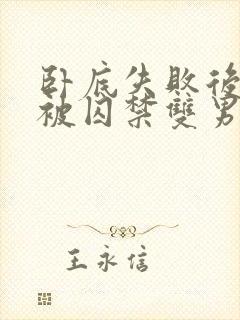 卧底失敗後
被囚禁雙男
王永信